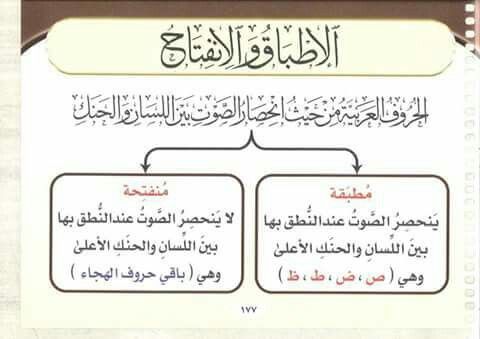 الإطباق والانفتاح
الحروف العربية من حيث انحصار الصوت بين اللسان والحنك
مُطبَقة
يَنحصِرُ الصَّوتُ عندالنُّطق بها
بينَ اللِّسانِ والحنكِ الأعلىٰ
وهي ( ص ، ض ، ط ، ظ )
مُنفتِحة
لا يَنحصِرُ الصَّوتُ عندالنُّطق بها
بينَ اللِّسانِ والحنكِ الأعلىٰ
وهي ( باقي حروف الهجاء )
١٧٧